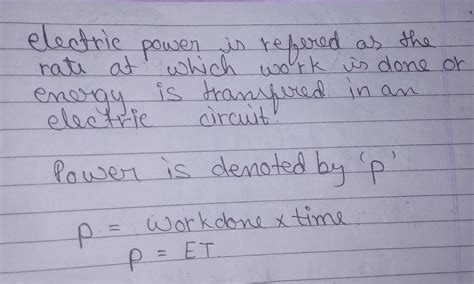 electric power is refered as the
rate at which work is done or
energy is transfered in an
electric circuit.
Power is denoted by 'p'
p = workdone x time
p = ET